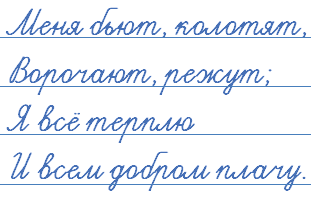 Меня бьют, колотят,
Ворочают, режут;
Я всё терплю
И всем добром плачу.